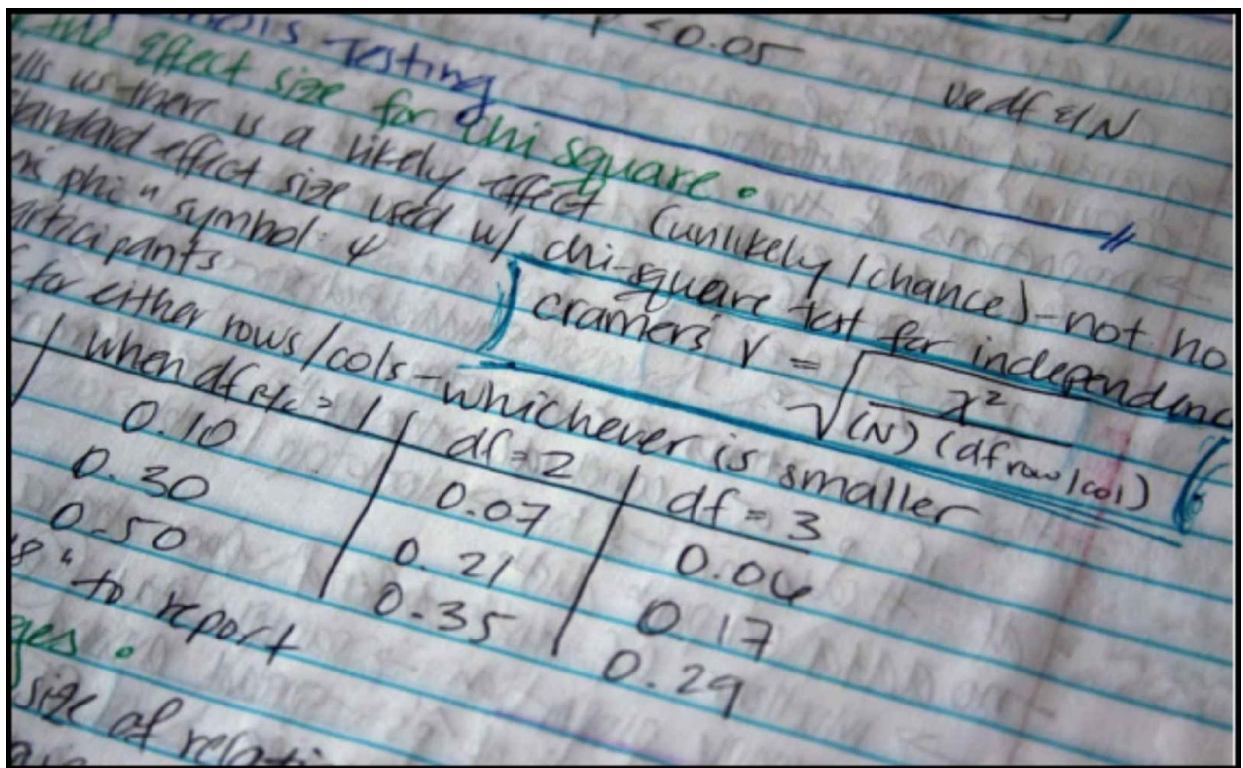 p < 0.05
Testing
vs df &/N
the Effect size for chi square.
us there is a likely effect (unlikely/chance) - not no
effect size used w/ chi-square test for independenc
phi" symbol: φ
cramers V = √ χ² / (N) (df row/col)
participants
for either rows/cols - whichever is smaller
when df R/C = 1 | df = 2 | df = 3
0.10 | 0.07 | 0.06
0.30 | 0.21 | 0.17
0.50 | 0.35 | 0.29
" to report
size of relati